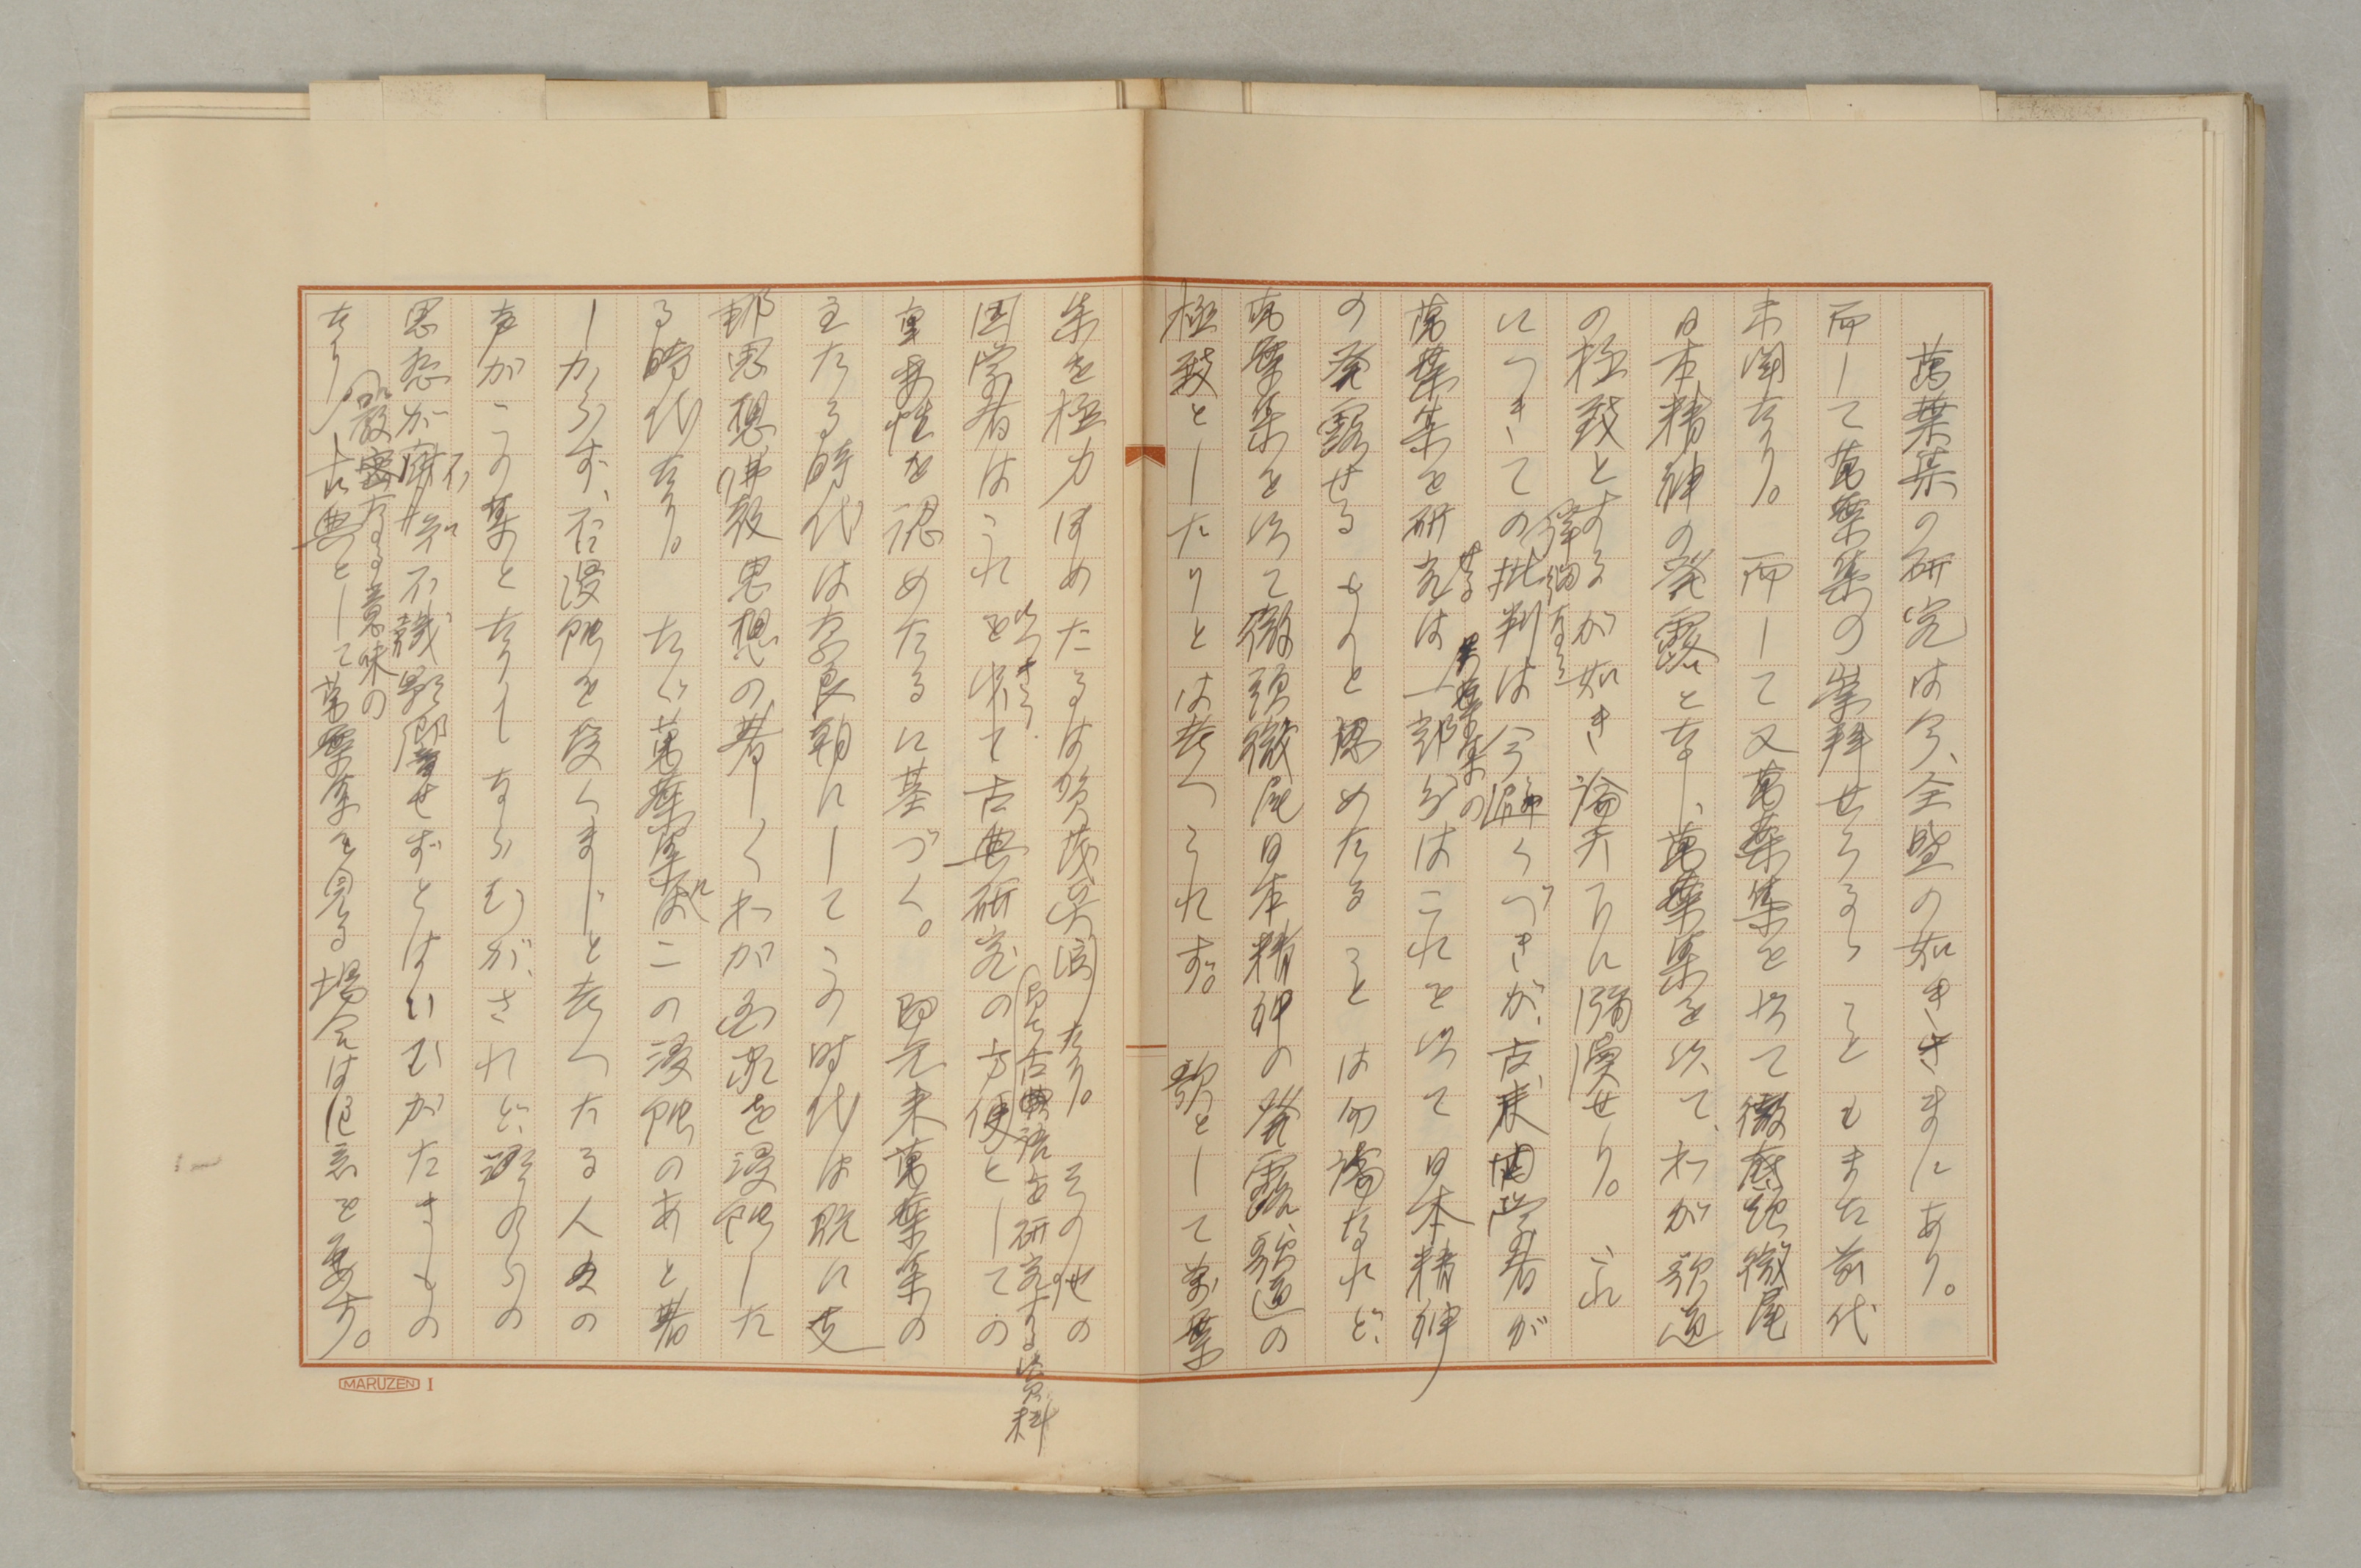 萬葉集の研究は今、全盛の如きさまにあり。
而して萬葉集の崇拝せらるゝこともまた前代
未聞なり。而して又萬葉集を以て徹頭徹尾
日本精神の発露となし、萬葉集を以て、わが歌道
の極致とするが如き論天下に瀰漫せり。これ
につきての詳細なる批判は今避くべきが、古来国学者が
萬葉集を研究せるは萬葉集の一部分はこれを以て日本精神
の発露せるものと認めたることは勿論なれど、
萬葉集を以て徹頭徹尾日本精神の発露、歌道の
極致としたりとは考へられず。歌として萬葉
集を極力ほめたるは賀茂真淵なり。その他の
国学者はこれを以て古典研究の方便としての
即ち古典語を研究する資料
重要性を認めたるに基づく。即元来萬葉集の
主たる時代は奈良朝にしてこの時代は既に支
那思想佛教思想の著しくわが国家を浸蝕した
る時代なり。たゞ萬葉集にはこの浸蝕のあと著
しからず、否浸蝕を受くまじと考へたる人々の
声がこの集となりしならむが、されど、それらの
思想が不用意不識の影響せずとはいひがたきもの
なり。厳密なる意味の
古典として萬葉集を見る場合は注意を要す。
MARUZEN I